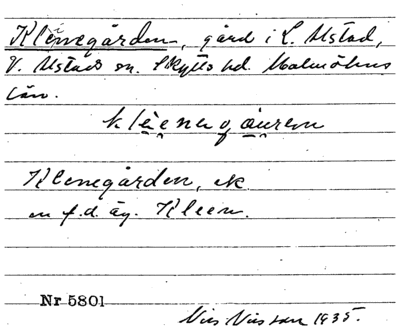 Klenegården, gård i L. Alstad,
V. Alstads sn. Skytts hd. Malmöhus
län.
Klenegården, ek
en f.d. äg. Kleen.
Nr 5801
Nils Nilsson 1935.